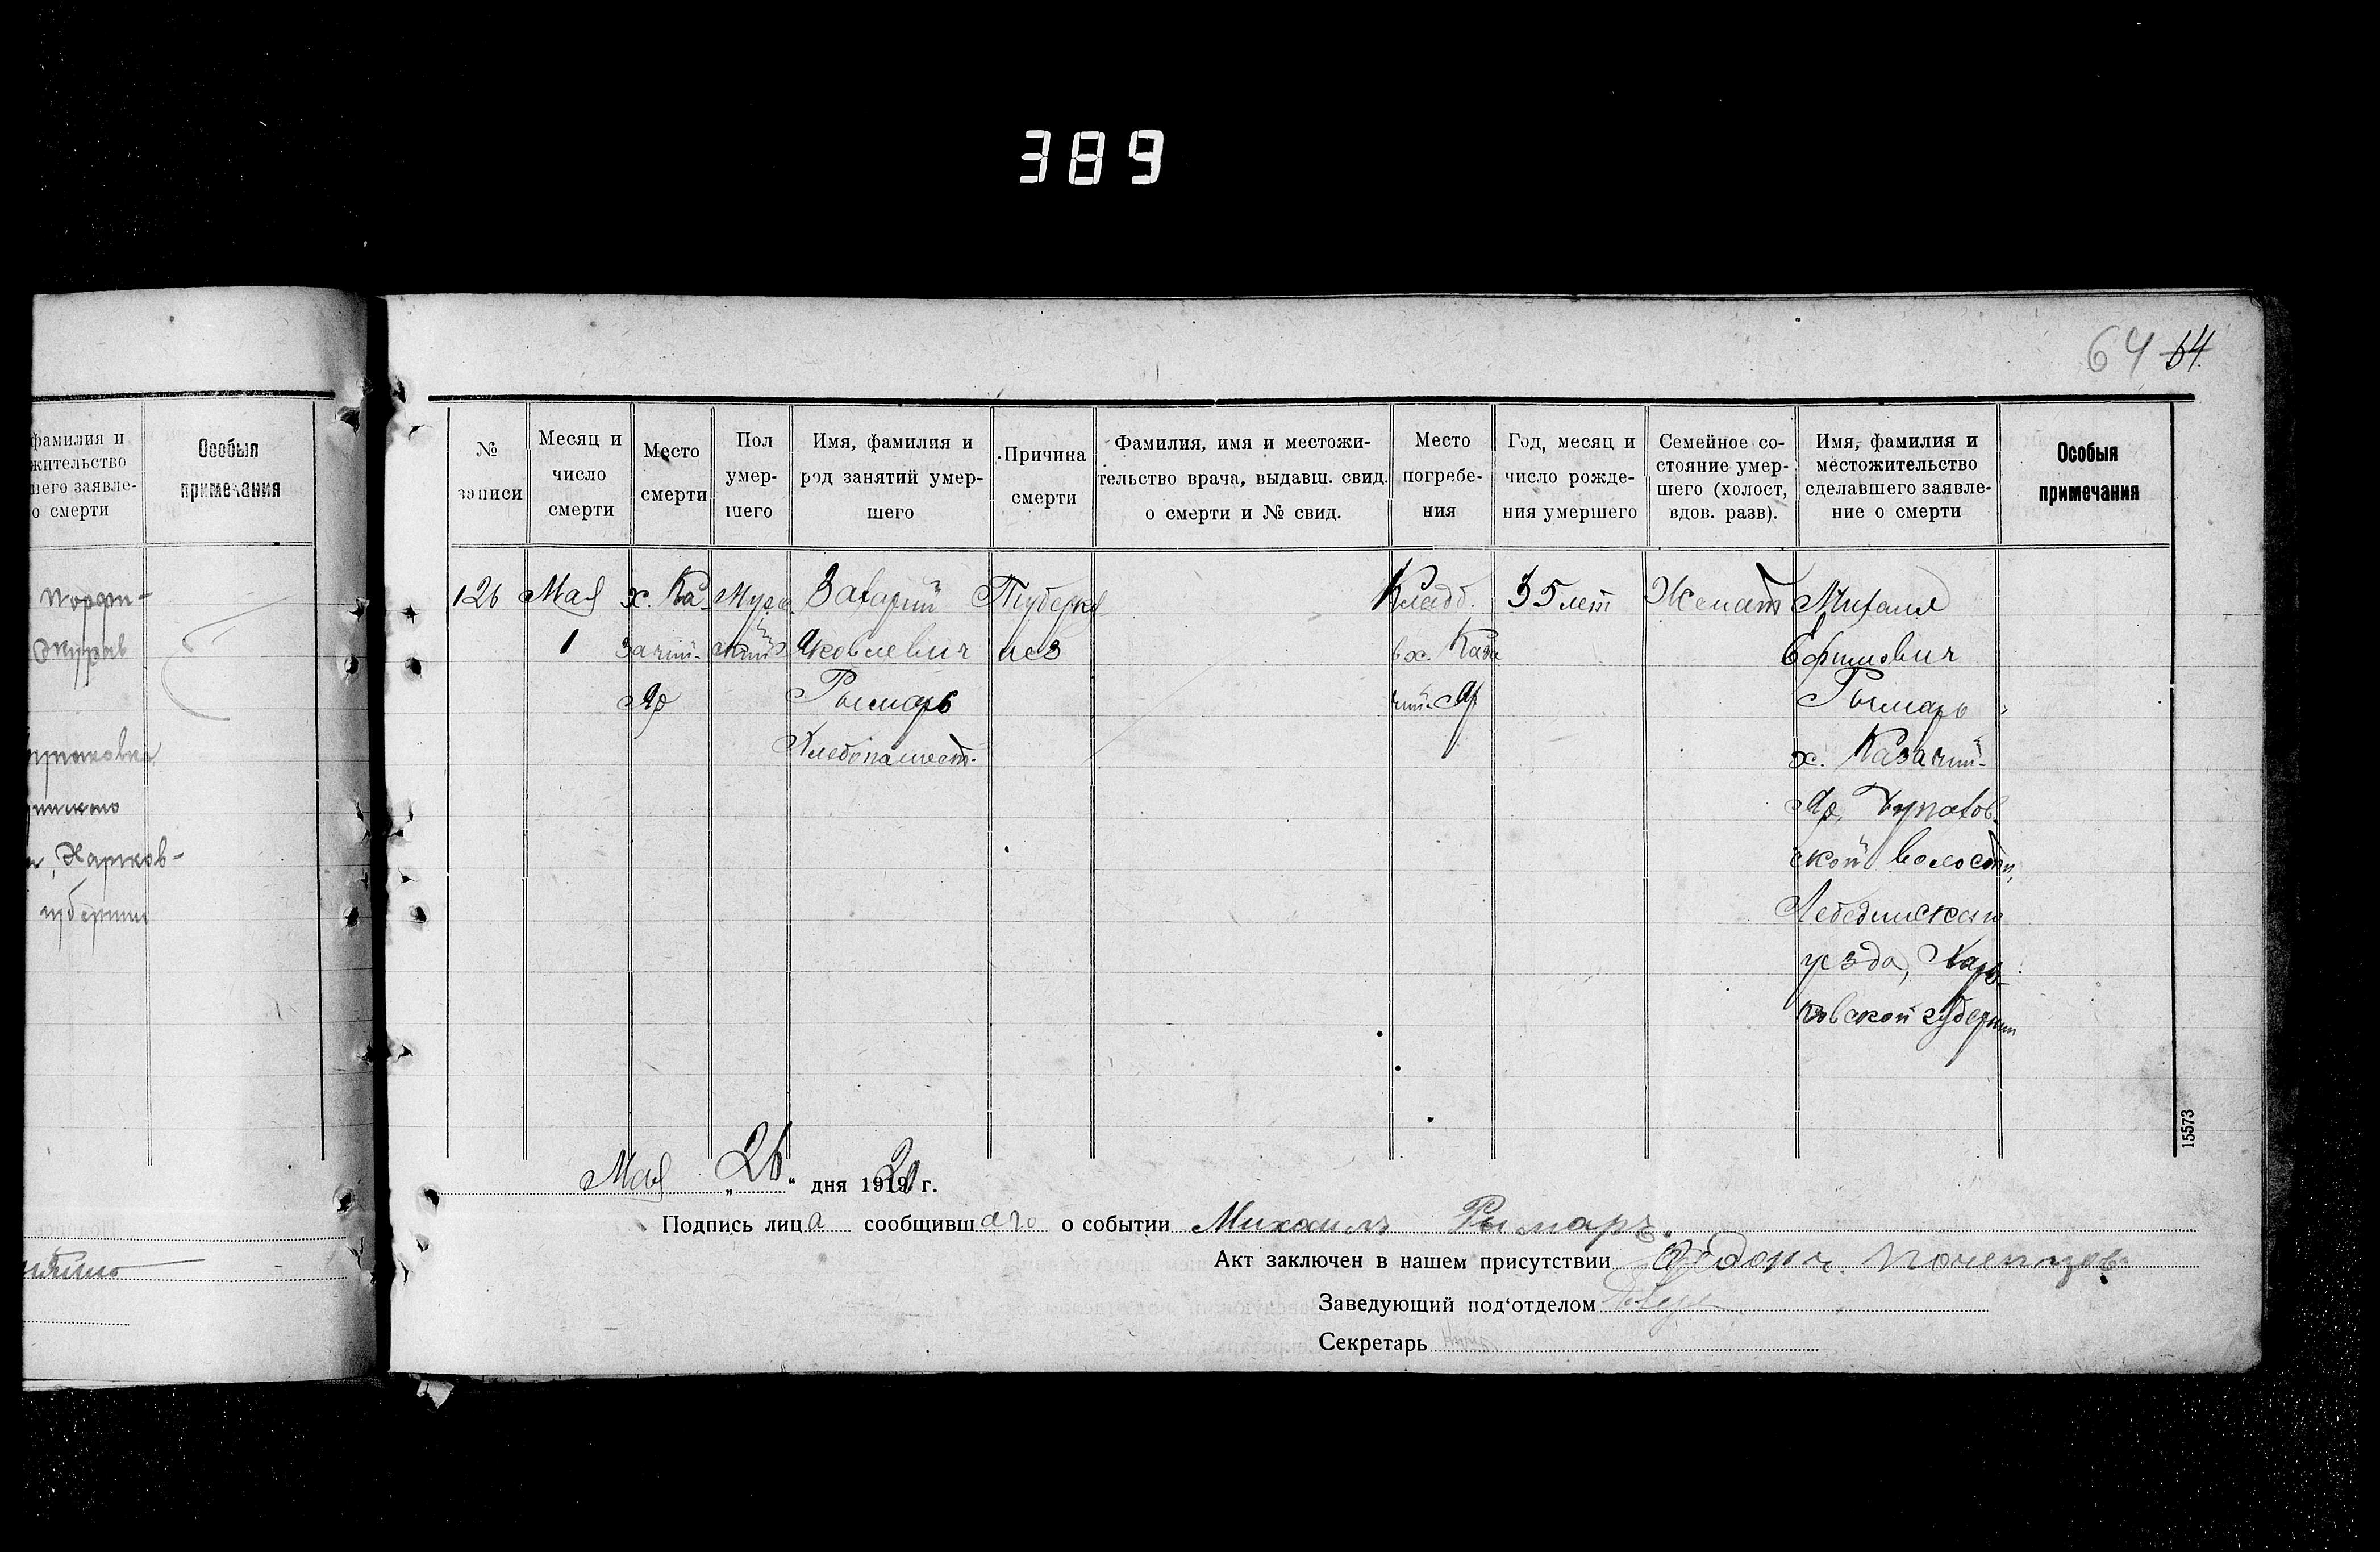 389
64 64
фамилия и
жительство
шего заявле-
о смерти
Особыя
примечания
Харков-
губернии
№
записи
Месяц и
число
смерти
Место
смерти
Пол
умер-
шего
Имя, фамилия и
род занятий умер-
шего
Причина
смерти
Фамилия, имя и местожи-
тельство врача, выдавш. свид.
о смерти и № свид.
Место
погребе-
ния
Год, месяц и
число рожде-
ния умершего
Семейное со-
стояние умер-
шего (холост,
вдов. разв).
Имя, фамилия и
местожительство
сделавшего заявле-
ние о смерти
Особыя
примечания
126
Мая
1
х. Ка-
зачий-
Яр
Мужс
кий
Захарий
Яковлевич
Рымарь
Хлебопашест.
Туберкул
лез
Кладб.
в х. Каза
чий-Яр
35 лет
Женат
Михаил
Ефимович
Рымарь
х. Казачий-
Яр,
ской волости,
Лебединского
уезда, Харь-
ковской губернии
Мая „26“ дня 1920 г.
Подпись лица сообщившаго о событии Михаилъ Рымаръ.
Акт заключен в нашем присутствии Федоръ
Заведующий под‘отделом
Секретарь
15573